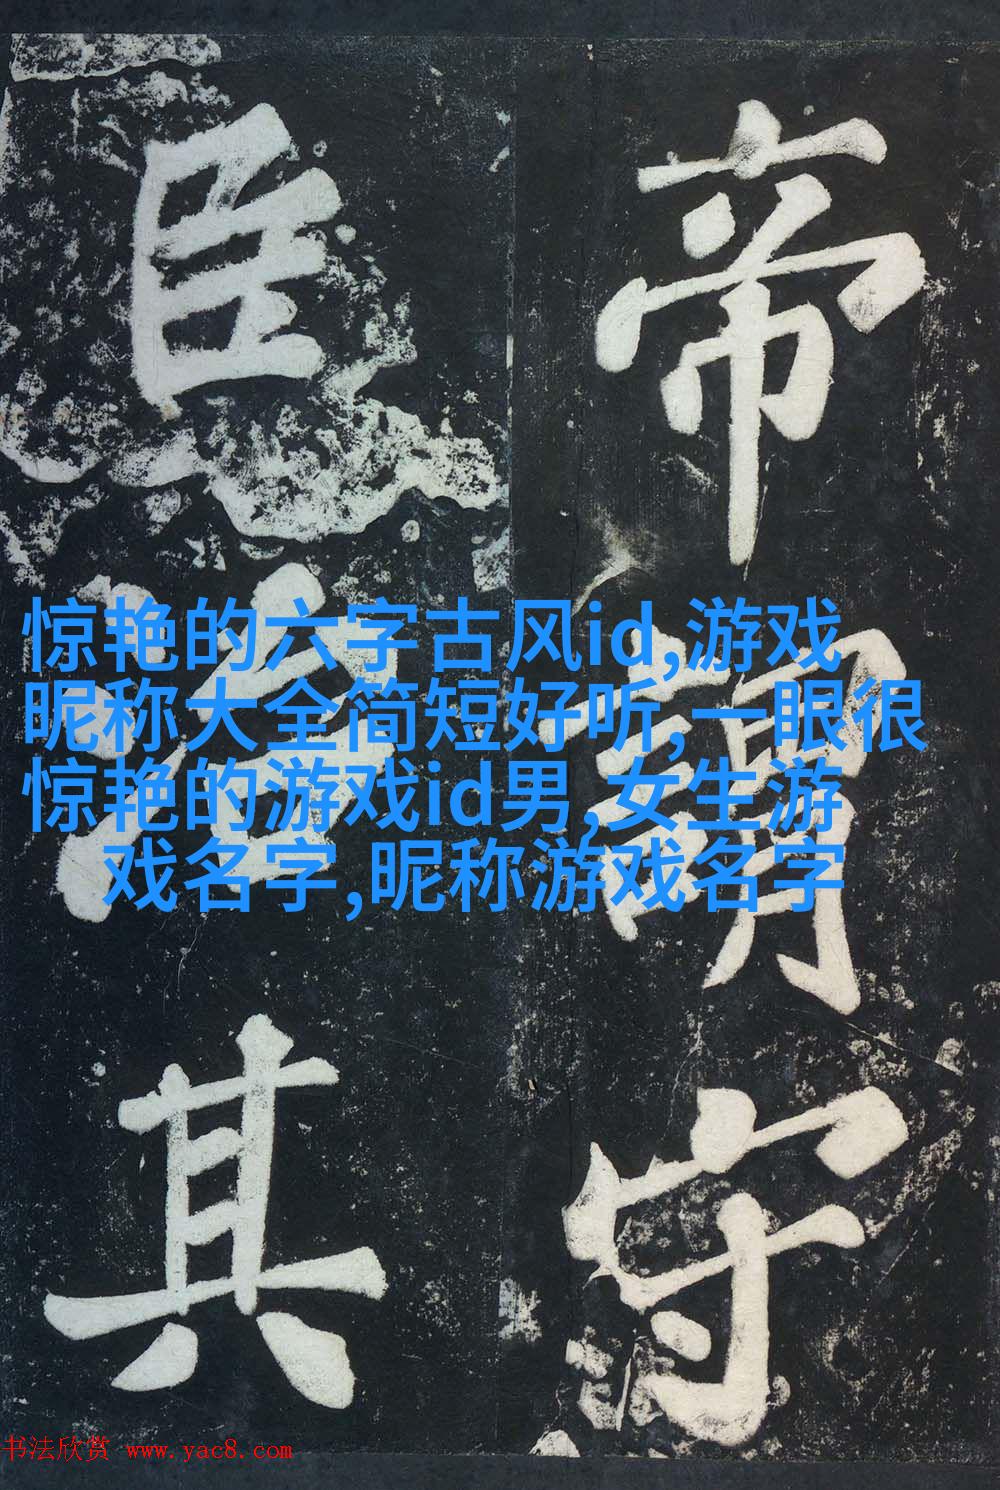 帝謂守
臣治其
惊艳的六字古风id,游戏
昵称大全简短好听,一眼很
惊艳的游戏id男,女生游
戏名字,昵称游戏名字
书法欣赏 www.yac8.com